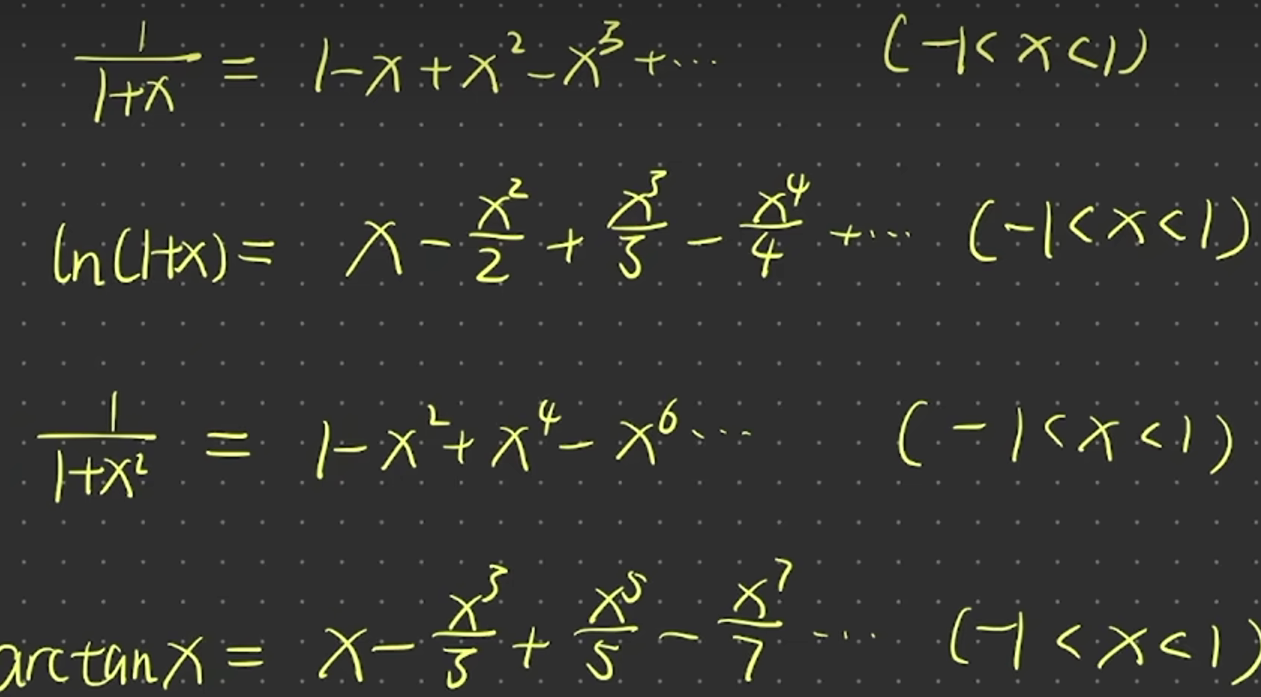 1/(1+x) = 1-x+x²-x³+··· (-1<x<1)
ln(1+x)= x - x²/2 + x³/3 - x⁴/4 +··· (-1<x<1)
1/(1+x²) = 1-x²+x⁴-x⁶··· (-1<x<1)
arctanx = x - x³/3 + x⁵/5 - x⁷/7 ··· (-1<x<1)